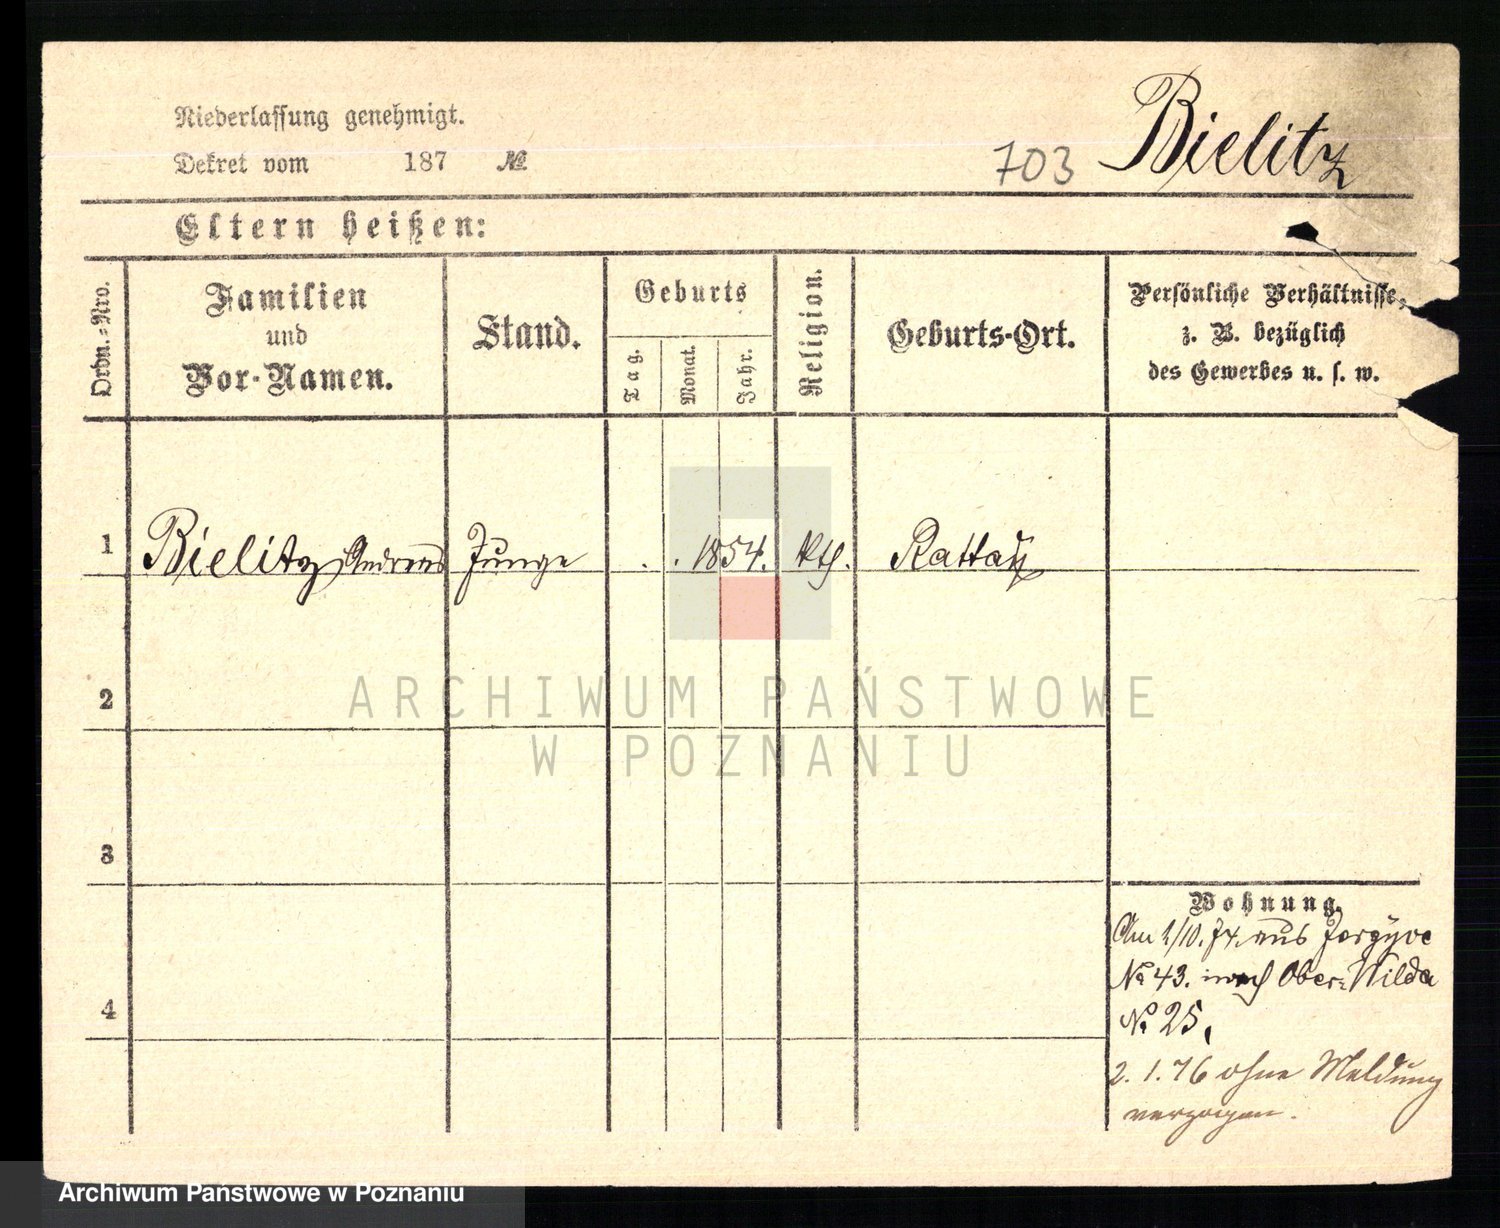 Niederlassung genehmigt.
Dekret vom 187 №
703 Bielitz
Eltern heißen:
Ordn.-Nro.
Familien
und
Vor-Namen.
Stand.
Geburts
Tag.
Monat.
Jahr.
Religion.
Geburts-Ort.
Persönliche Verhältnisse,
z. B. bezüglich
des Gewerbes u. s. w.
1 Bielitz Andreas Junge . . 1854. kth. Rattaÿ
2
3
4
Wohnung.
Am 2/10. 74. aus
№ 43. nach Ober-Wilda
№ 25.
2. 1. 76 ohne Meldung
verzogen.
ARCHIWUM PAŃSTWOWE
W POZNANIU
Archiwum Państwowe w Poznaniu